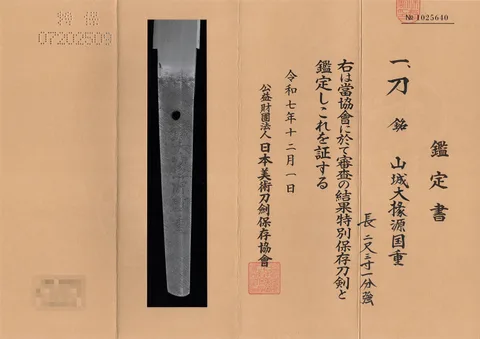 № 1025640
鑑定書
一、刀 銘 山城大掾源国重
長 二尺三寸一分強
右は當協會に於て審査の結果特別保存刀剣と
鑑定しこれを証する
令和七年十二月一日
公益財団法人日本美術刀剣保存協會
07202509